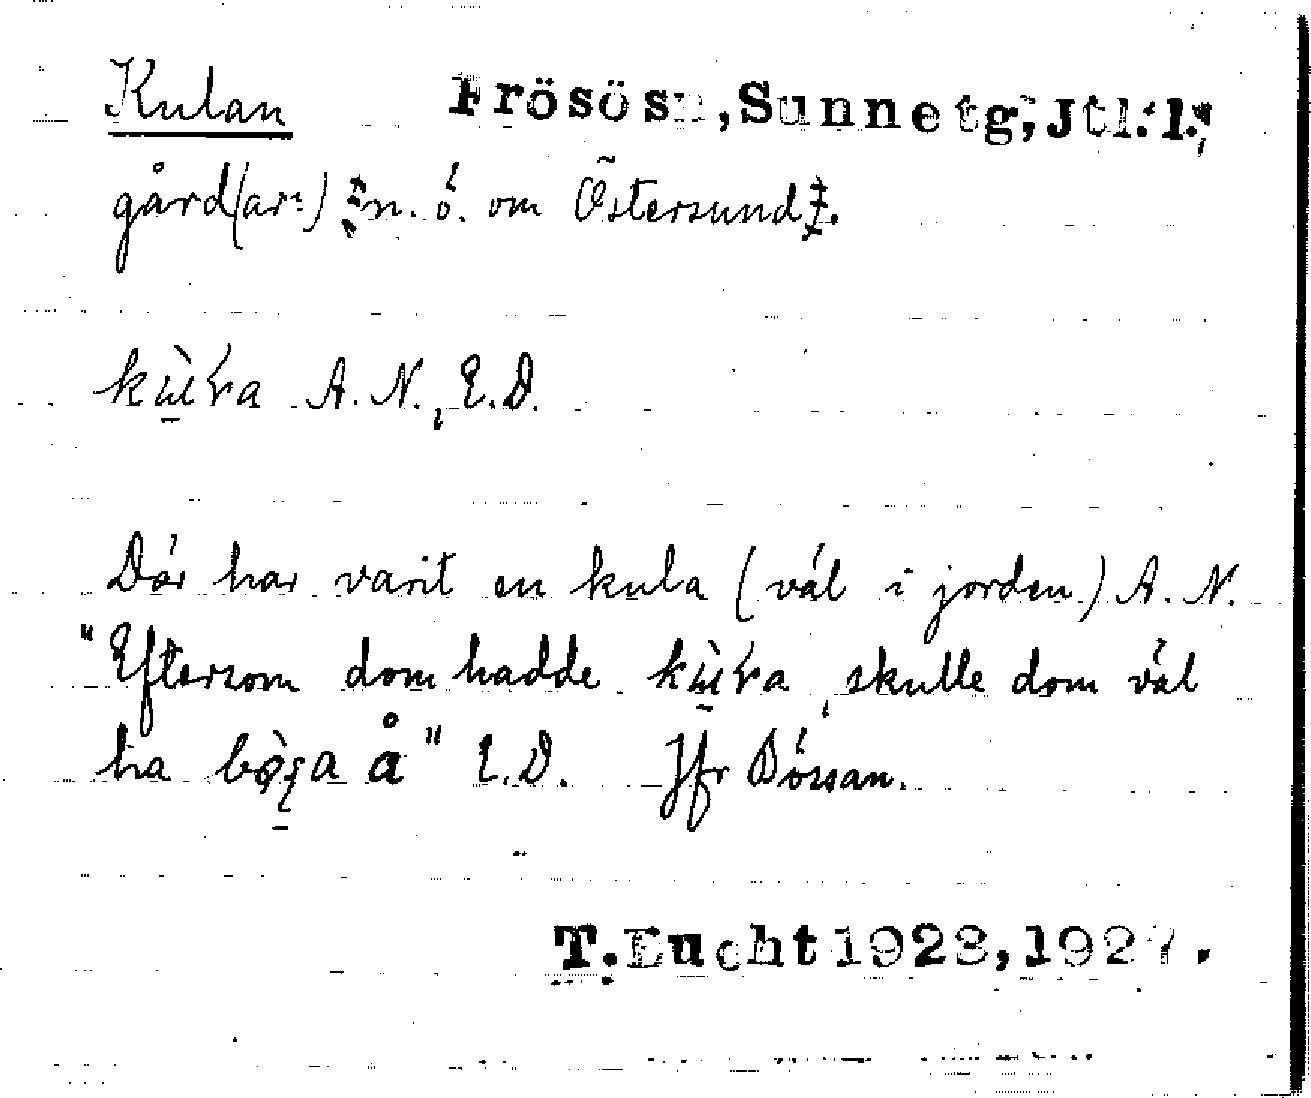 Kulan Frösösn, Sunne tg, Jtl. l.,
gård(ar) n. ö. om Östersund.
kùɽa A. N., E. D.
Där har varit en kula (väl i jorden) A. N.
"Eftersom dom hadde kùɽa, skulle dom väl
ha bøga å" E. D. Jfr Bössan.
T. Eucht 1923, 1927.